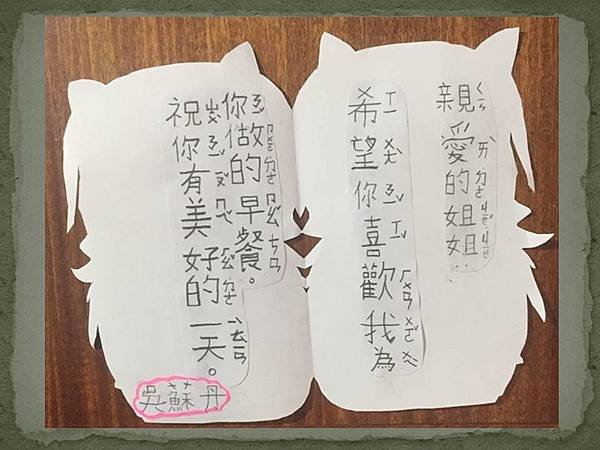 親愛的姐姐:
希望你喜歡我為
你做的早餐。
祝你有美好的一天。
吳蘇丹